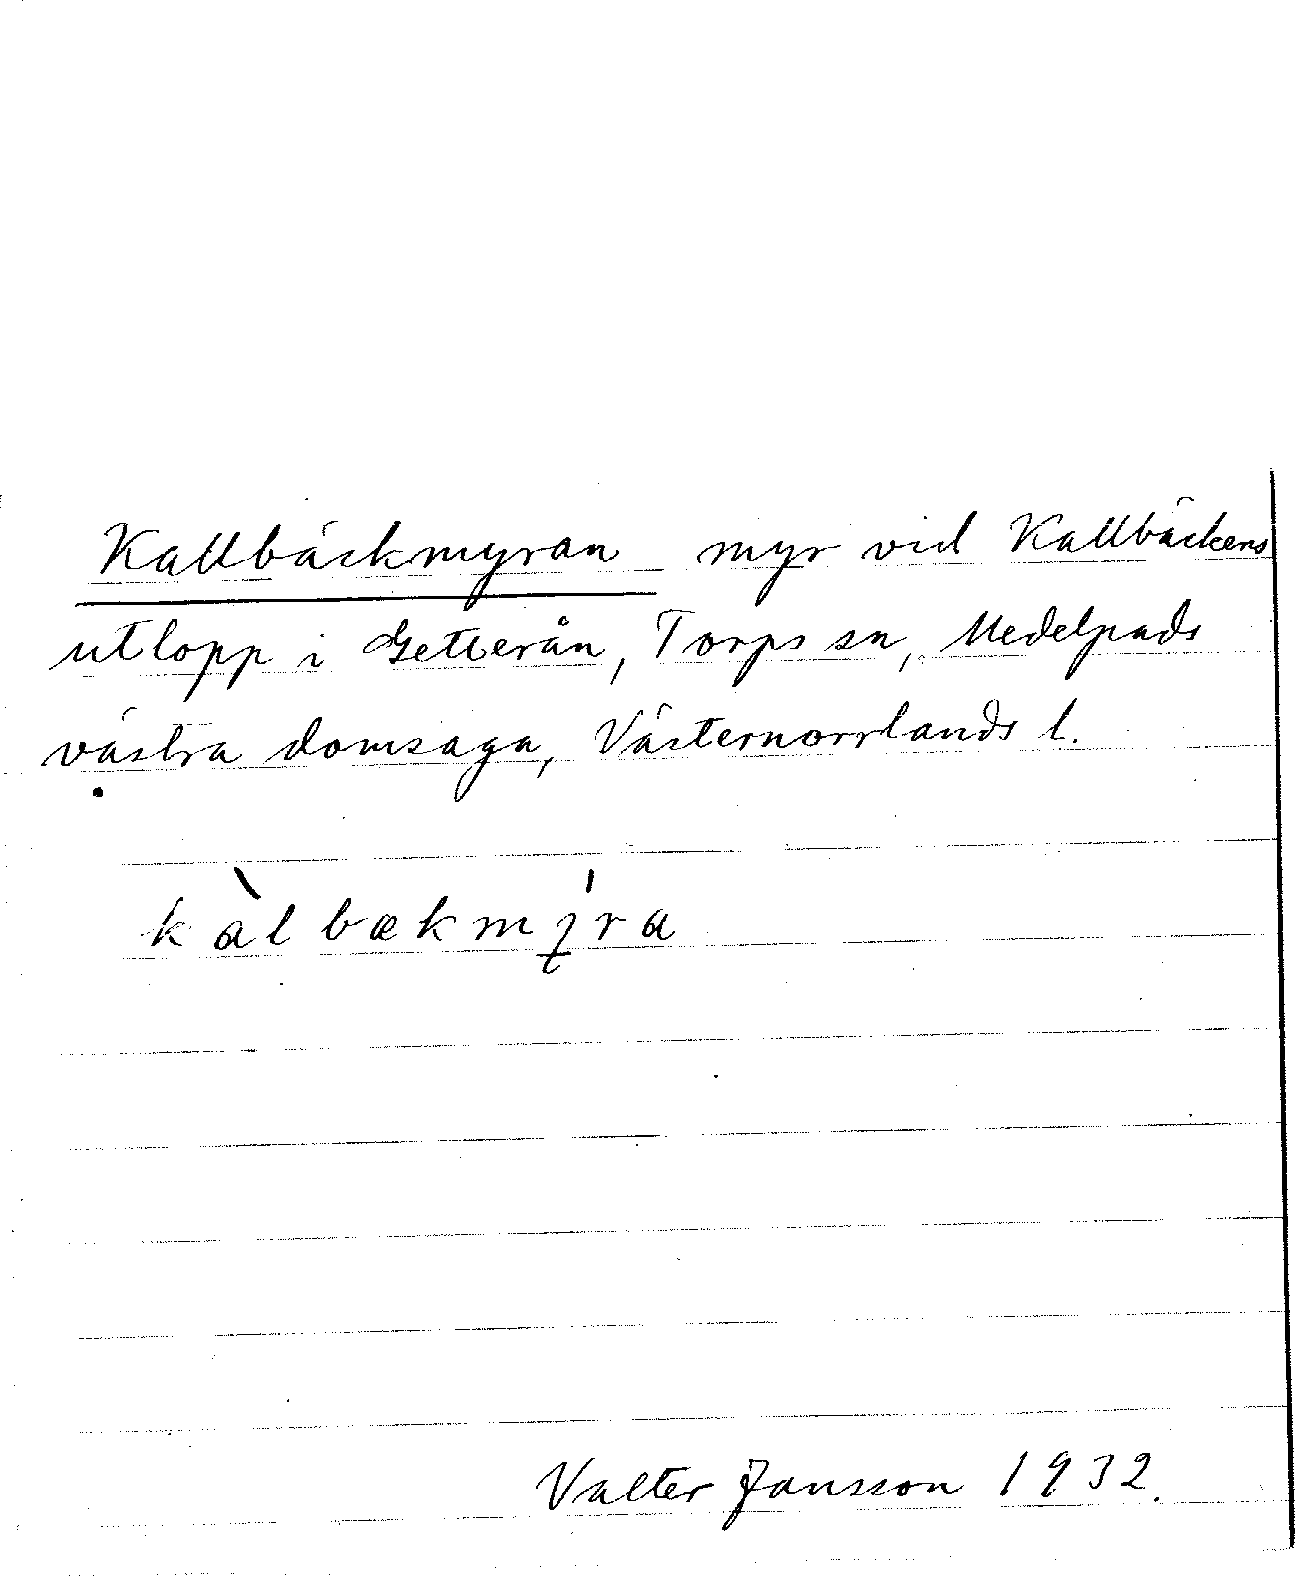 Kallbäckmyran myr vid Kallbäckens
utlopp i Getterån, Torps sn, Medelpads
västra domsaga, Västernorrlands l.
kàlbækmy̆ra
Valter Jansson 1932.